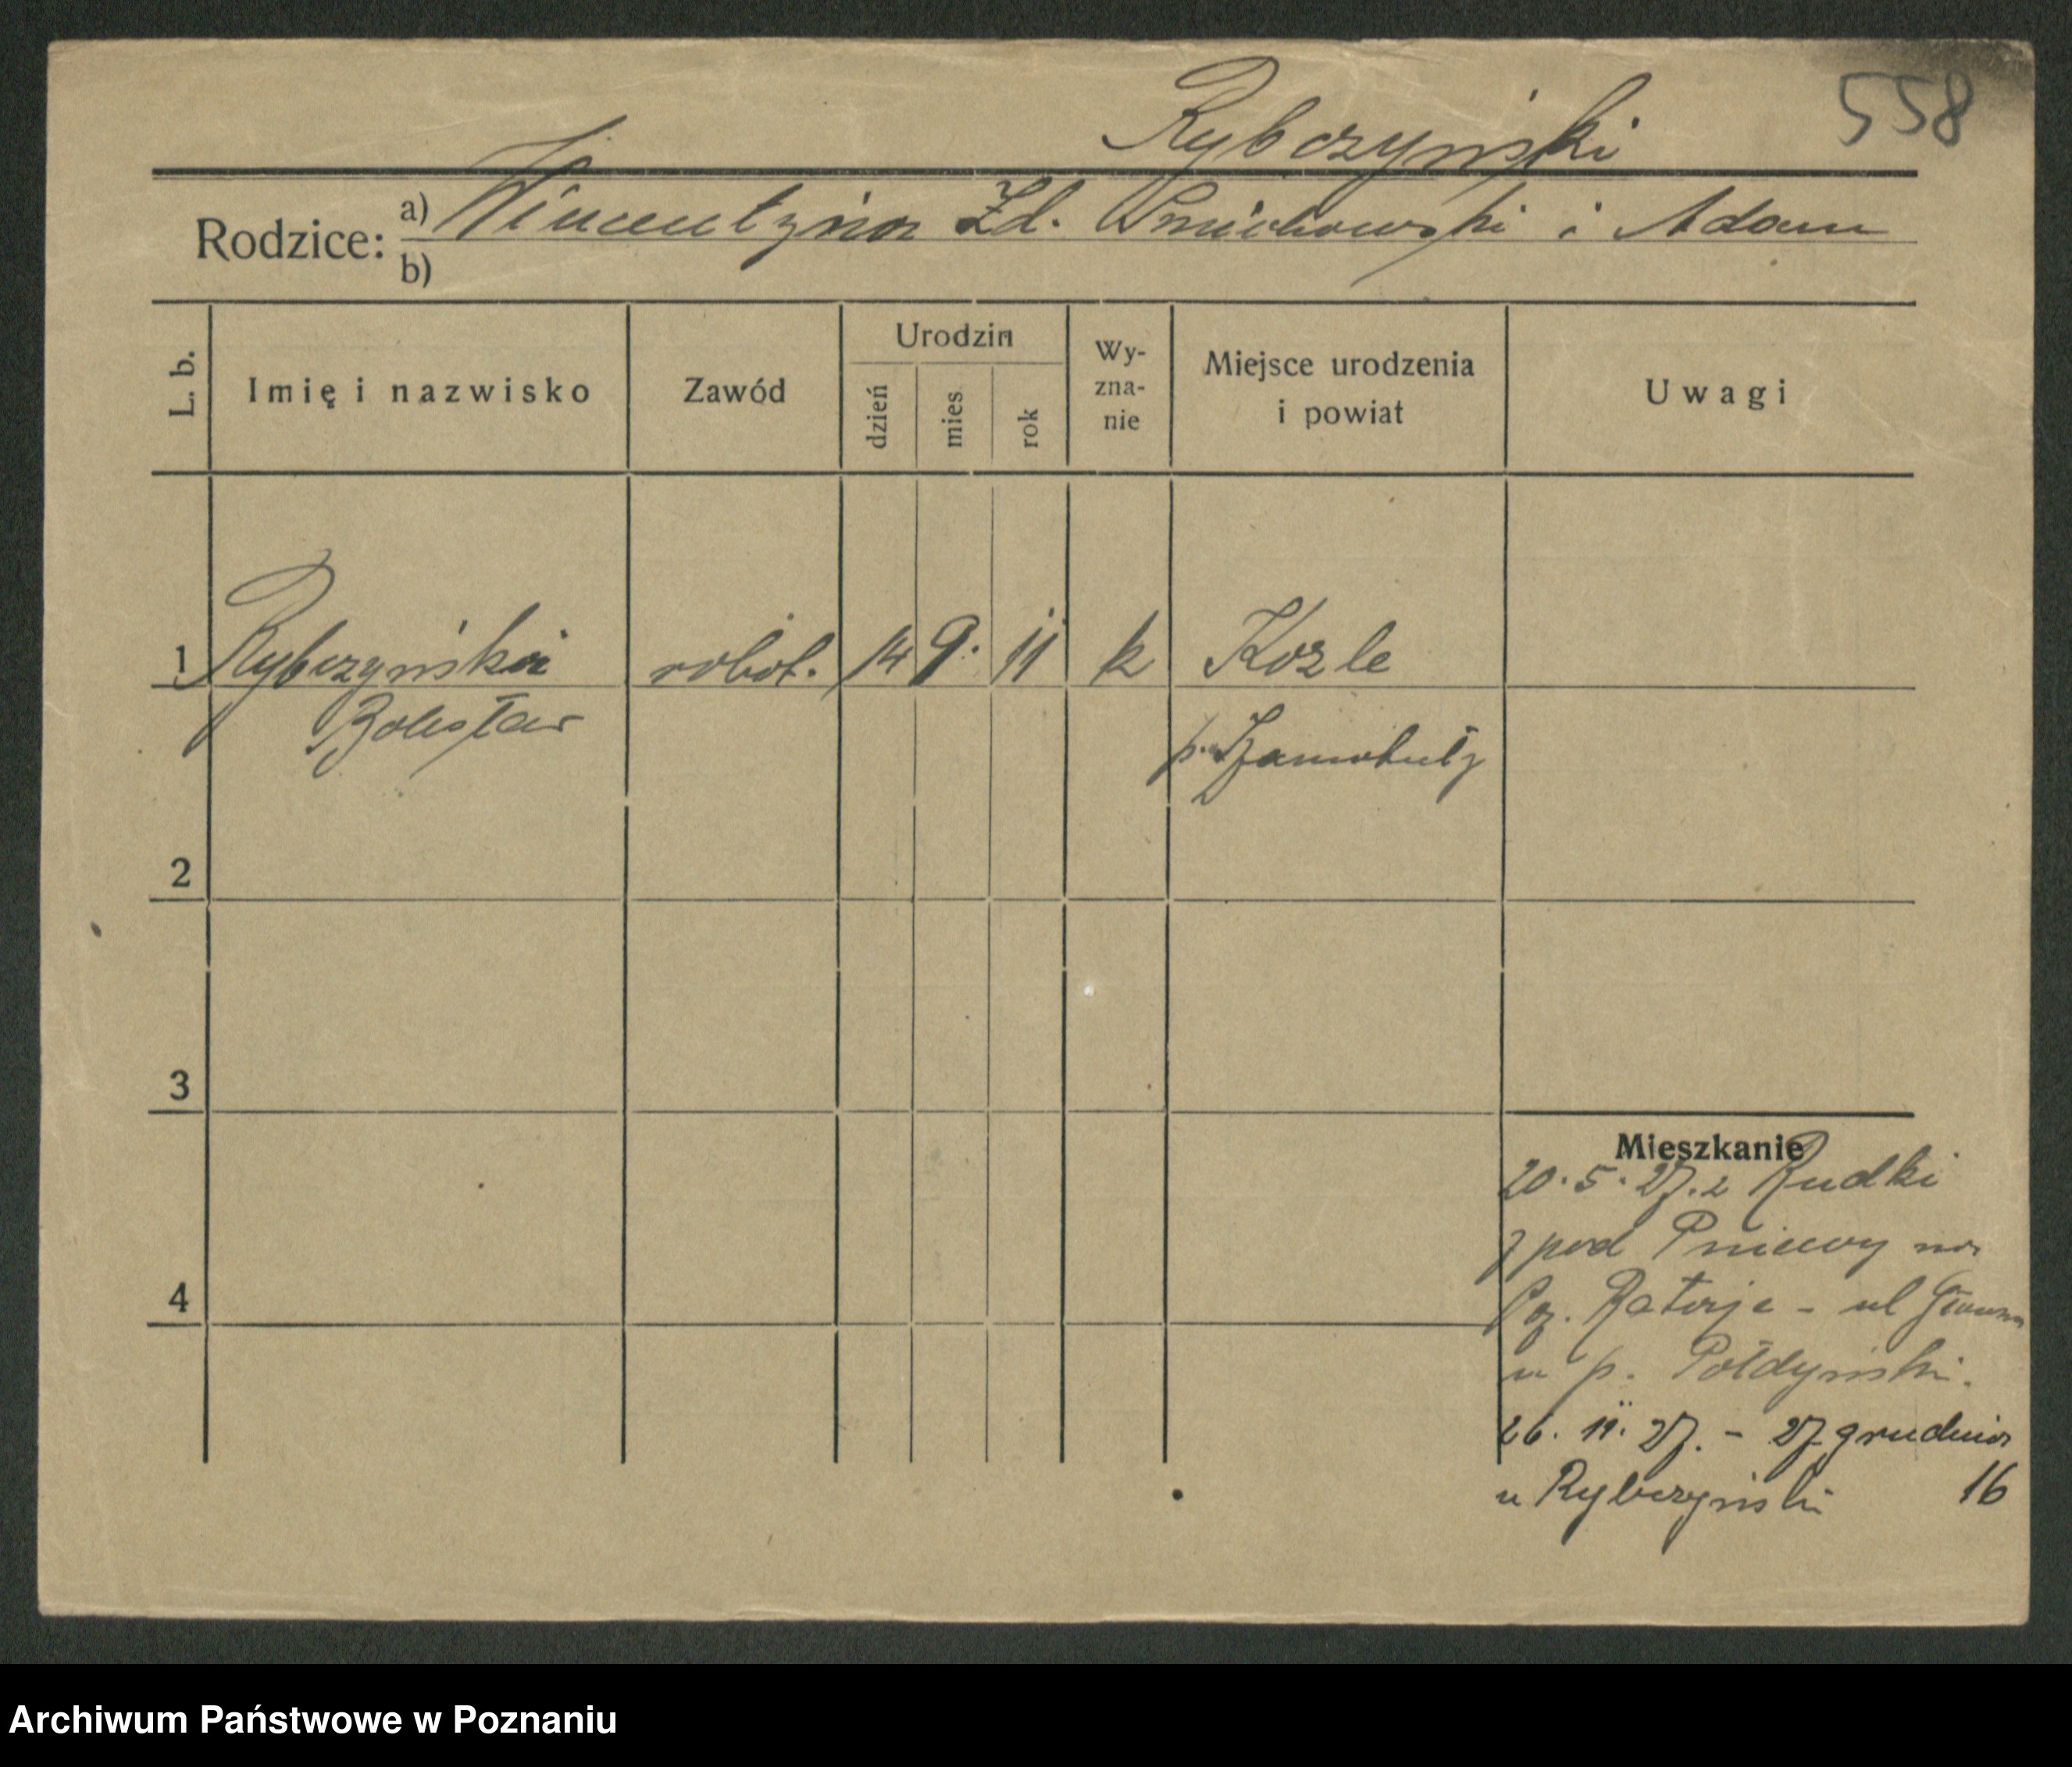 558
Rybczyński
Rodzice: a) Wincentyna Zd. i Adam
b)
L. b. Imię i nazwisko Zawód Urodzin dzień mies rok Wyznanie Miejsce urodzenia i powiat Uwagi
1 Rybczyński robot. 14 9. 11 k Kozle
Bolesław p. Szamotuły
2
3
Mieszkanie
20. 5. 27. z Rudki
z pod Pniewy na
4 Poz. Rataje - ul
u p. Połdyński.
26. 11. 27. - 27 grudnia
u Rybczyński 16
Archiwum Państwowe w Poznaniu